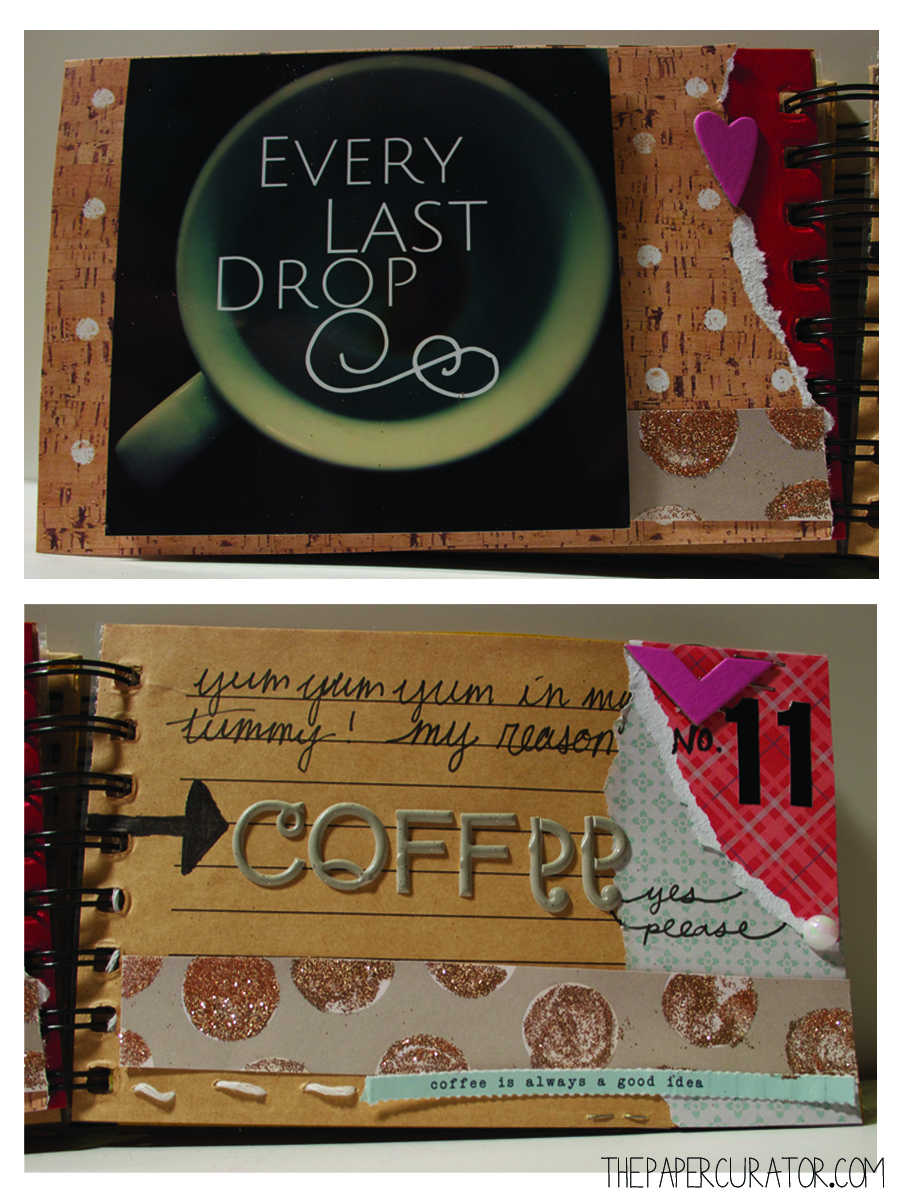 EVERY
LAST
DROP
yum yum yum in my
tummy! my reason
No. 11
COFFee
yes
please
coffee is always a good idea
THEPAPERCURATOR.COM